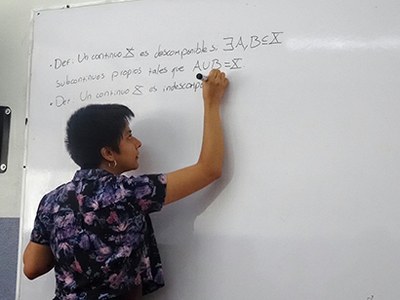 • Def: Un continuo X es descomponible si ∃ A, B ⊆ X
subcontinuos propios tales que A∪B = X
• Def: Un continuo X es indescompo